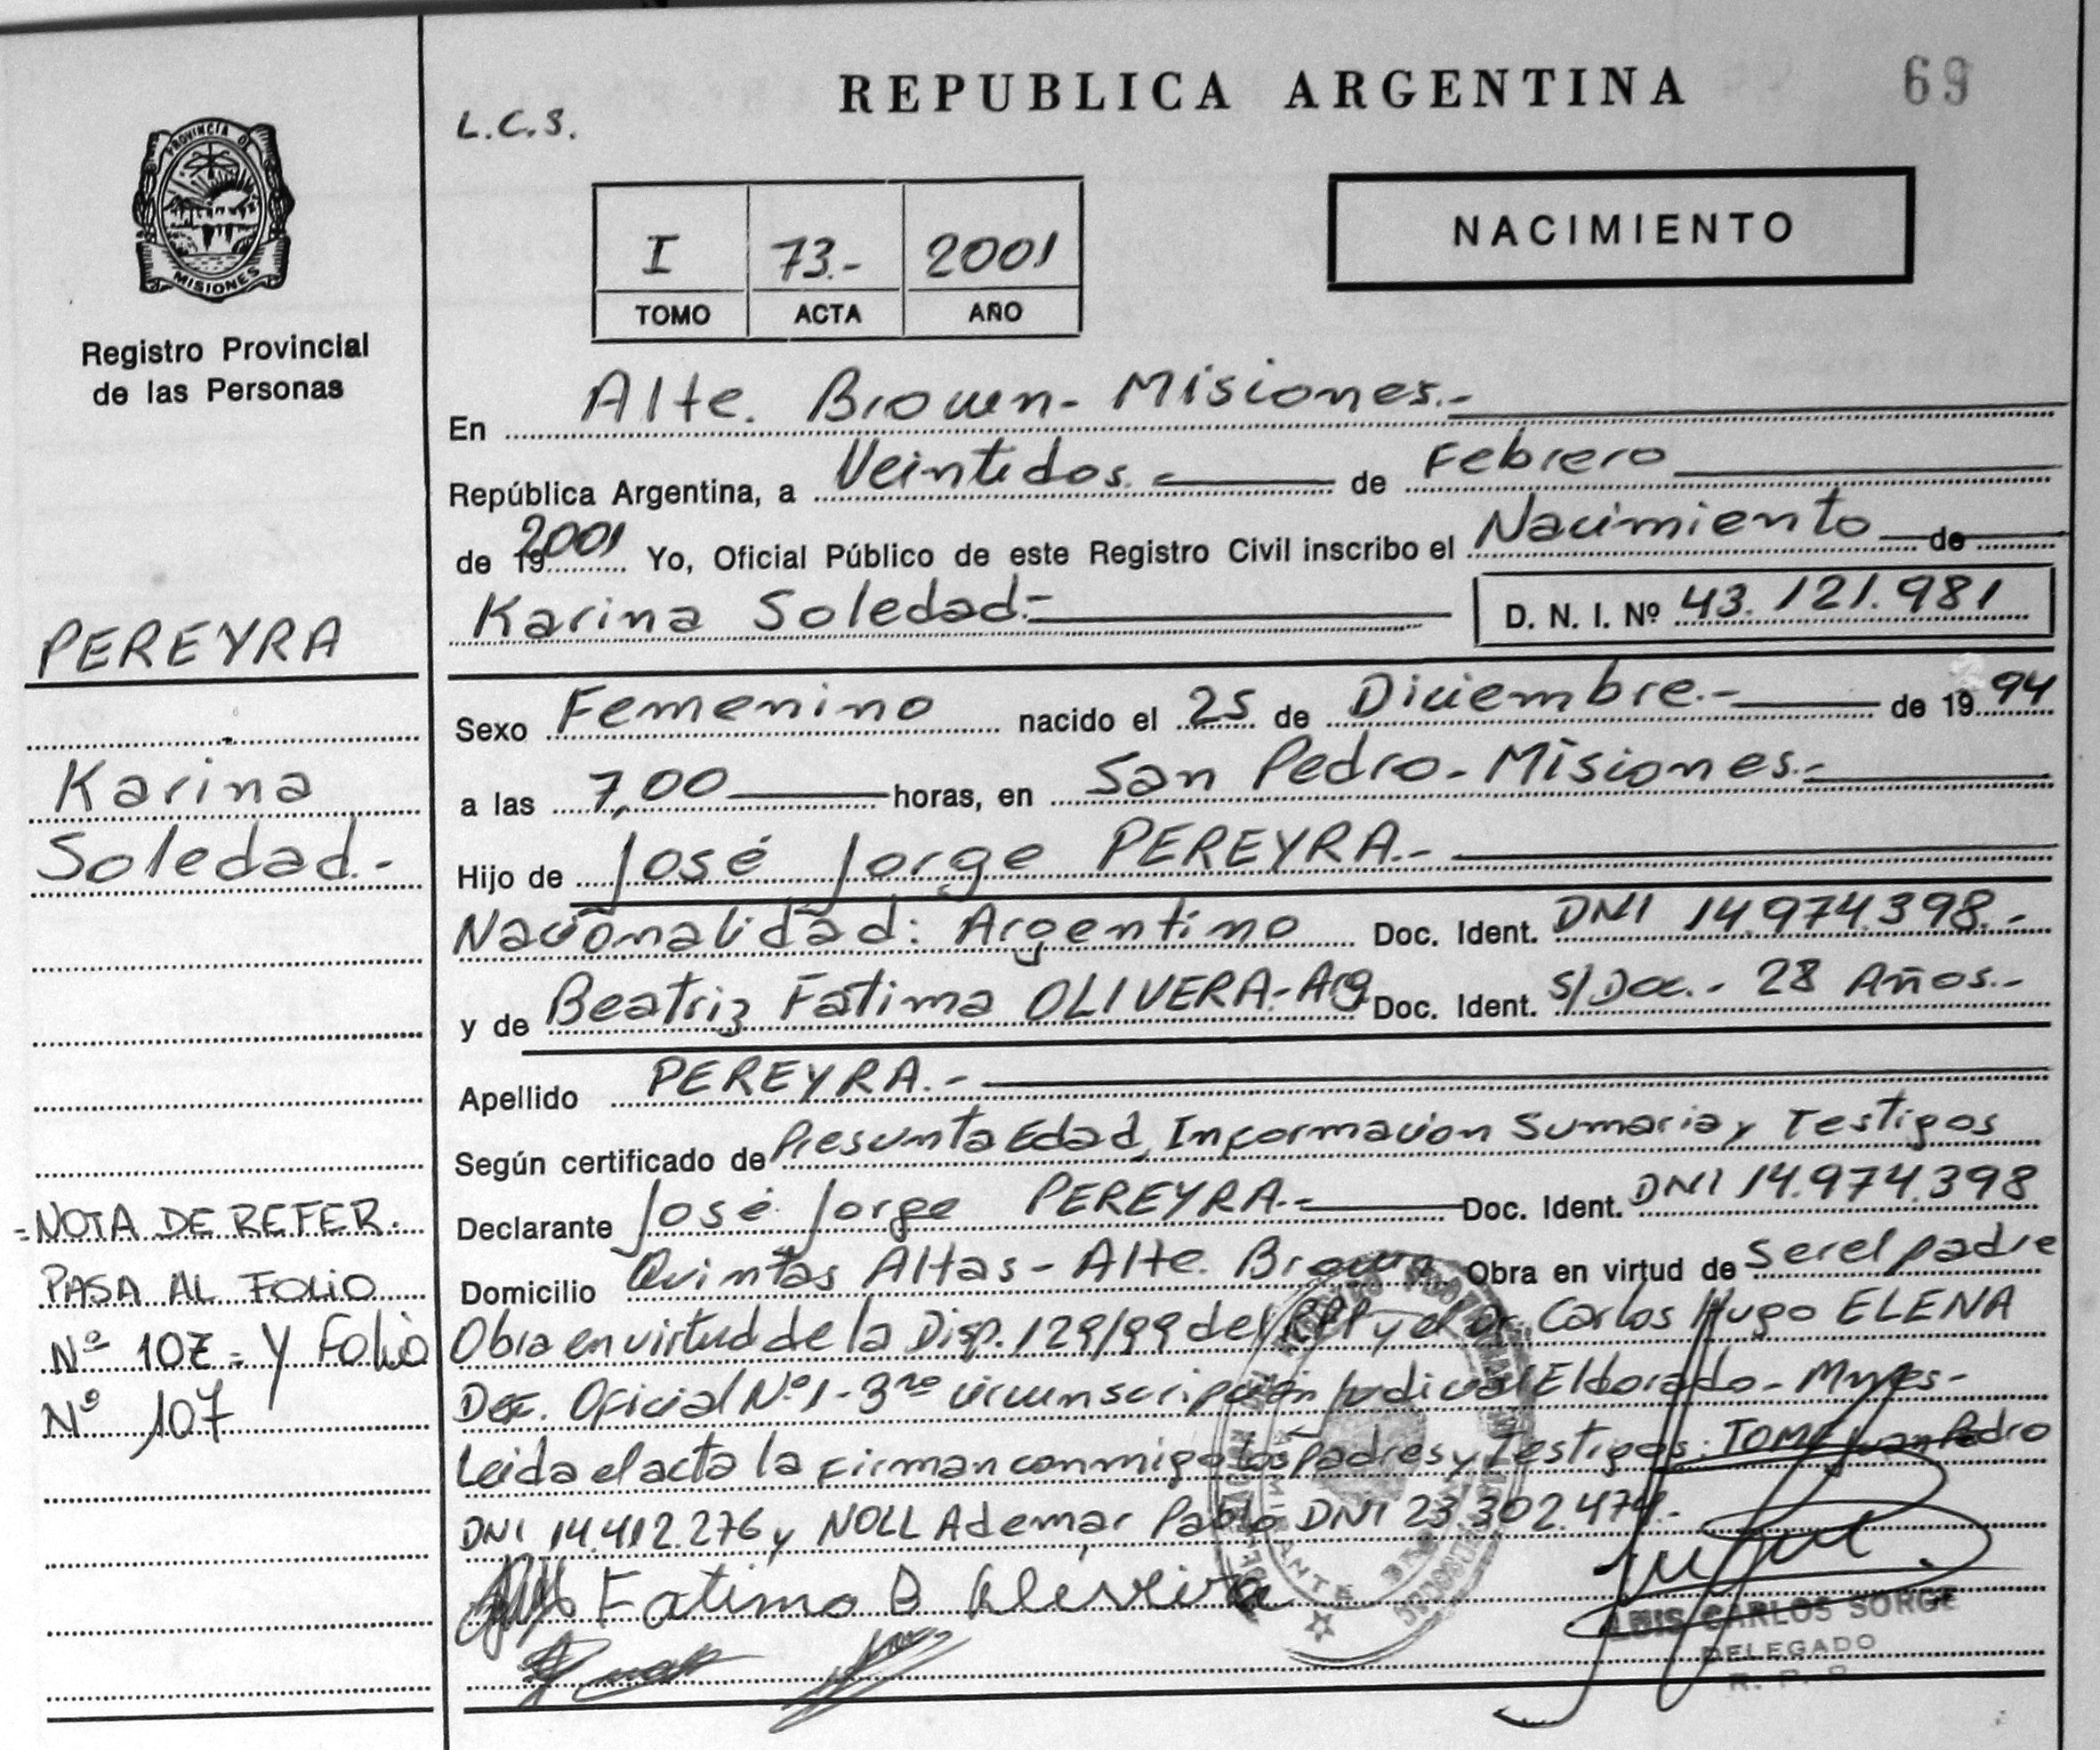 REPUBLICA ARGENTINA
69
L.C.S.
PROVINCIA DE
MISIONES
Registro Provincial
de las Personas
I 73.- 2001
TOMO ACTA AÑO
NACIMIENTO
En Alte. Brown - Misiones.-
República Argentina, a Veintidos.- de Febrero
de 19 2001 Yo, Oficial Público de este Registro Civil inscribo el Nacimiento de
Karina Soledad.- D. N. I. Nº 43.121.981
PEREYRA
Karina
Soledad.-
Sexo Femenino nacido el 25 de Diciembre.- de 1994
a las 7,00 horas, en San Pedro - Misiones.-
Hijo de José Jorge PEREYRA.-
Nacionalidad: Argentino Doc. Ident. DNI 14.974.398.-
y de Beatriz Fátima OLIVERA.- Arg Doc. Ident. S/Doc.- 28 Años.-
Apellido PEREYRA.-
Según certificado de Presunta Edad, Informacion Sumaria y Testigos
Declarante José Jorge PEREYRA.- Doc. Ident. DNI 14.974.398
Domicilio Quintas Altas - Alte. Brown Obra en virtud de Ser el padre
Obra en virtud de la Disp. 129/99 del RPP y el Dr. Carlos Hugo ELENA
Def. Oficial Nº 1 - 3ra circunscripción Judicial Eldorado - Mnes -
Leida el acta la firman conmigo los padres y Testigos: TOME Juan Pedro
DNI 14.412.276 y NOLL Ademar Pablo DNI 23.302.474.-
Fatima B Oliveira
LUIS CARLOS SORGE
DELEGADO
R. P. P.
- NOTA DE REFER.
PASA AL FOLIO
Nº 107 = Y Folio
Nº 107